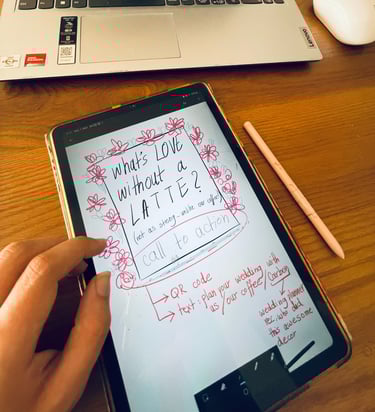 what's LOVE
without a
LATTE?
(not as strong - unlike our coffee)
call to action
QR code
Text: plan your wedding with
us / our coffee / Carbon
wedding planner
rec, who did
this awesome
decor
Lenovo